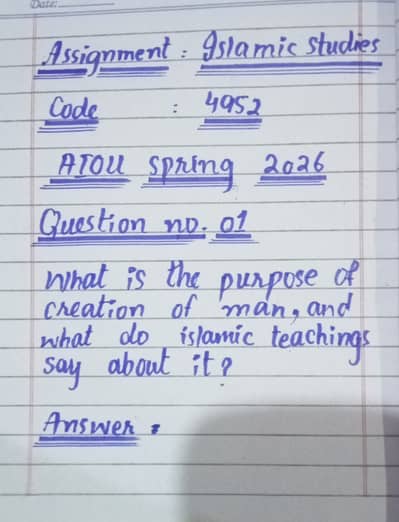 Date:
Assignment : Islamic studies
Code : 4952
AIOU Spring 2026
Question no. 01
What is the purpose of
creation of man, and
what do islamic teachings
say about it?
Answer :